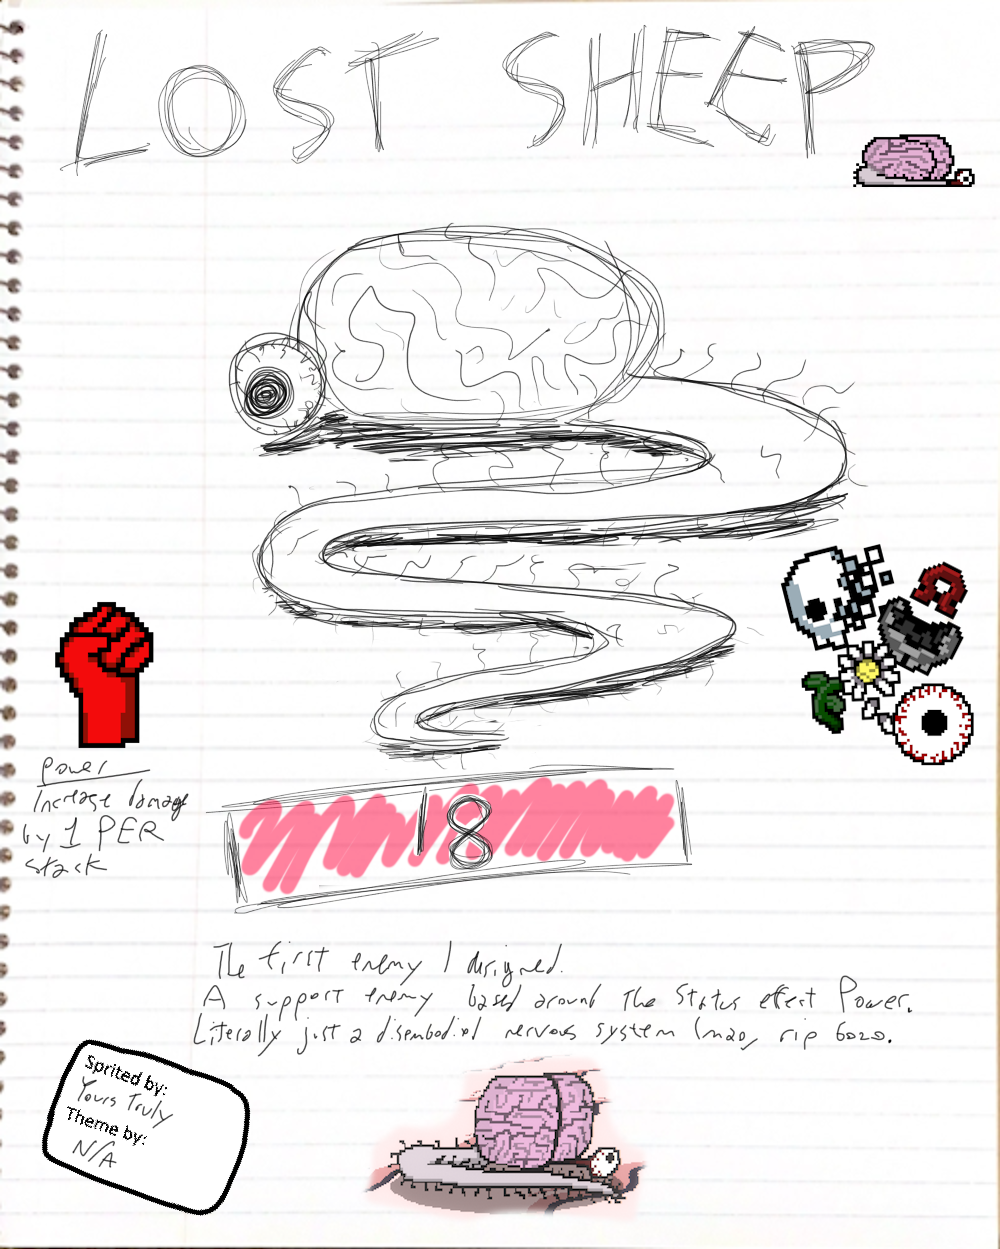 LOST SHEEP
Power
Increase Damage
by 1 PER
stack
18
The first enemy I designed.
A support enemy based around the Status effect Power.
Literally just a disembodied nervous system lmao, rip bozo.
Sprited by:
Yours Truly
Theme by:
N/A